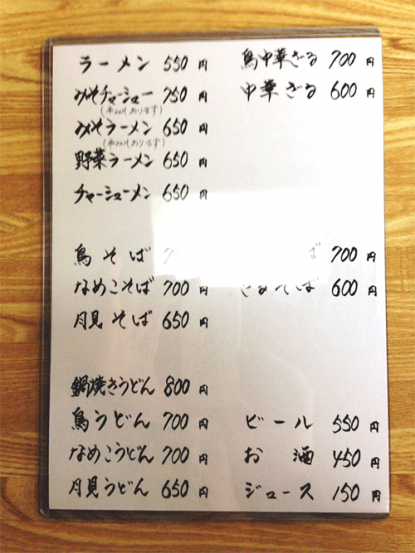 ラーメン 550円
みそチャーシュー 750円
みそラーメン 650円
野菜ラーメン 650円
チャーシューメン 650円
鳥そば
なめこそば 700円
月見そば 650円
鍋焼きうどん 800円
鳥うどん 700円
なめこうどん 700円
月見うどん 650円
鳥中華ざる 700円
中華ざる 600円
ば 700円
ざるそば 600円
ビール 550円
お酒 450円
ジュース 150円